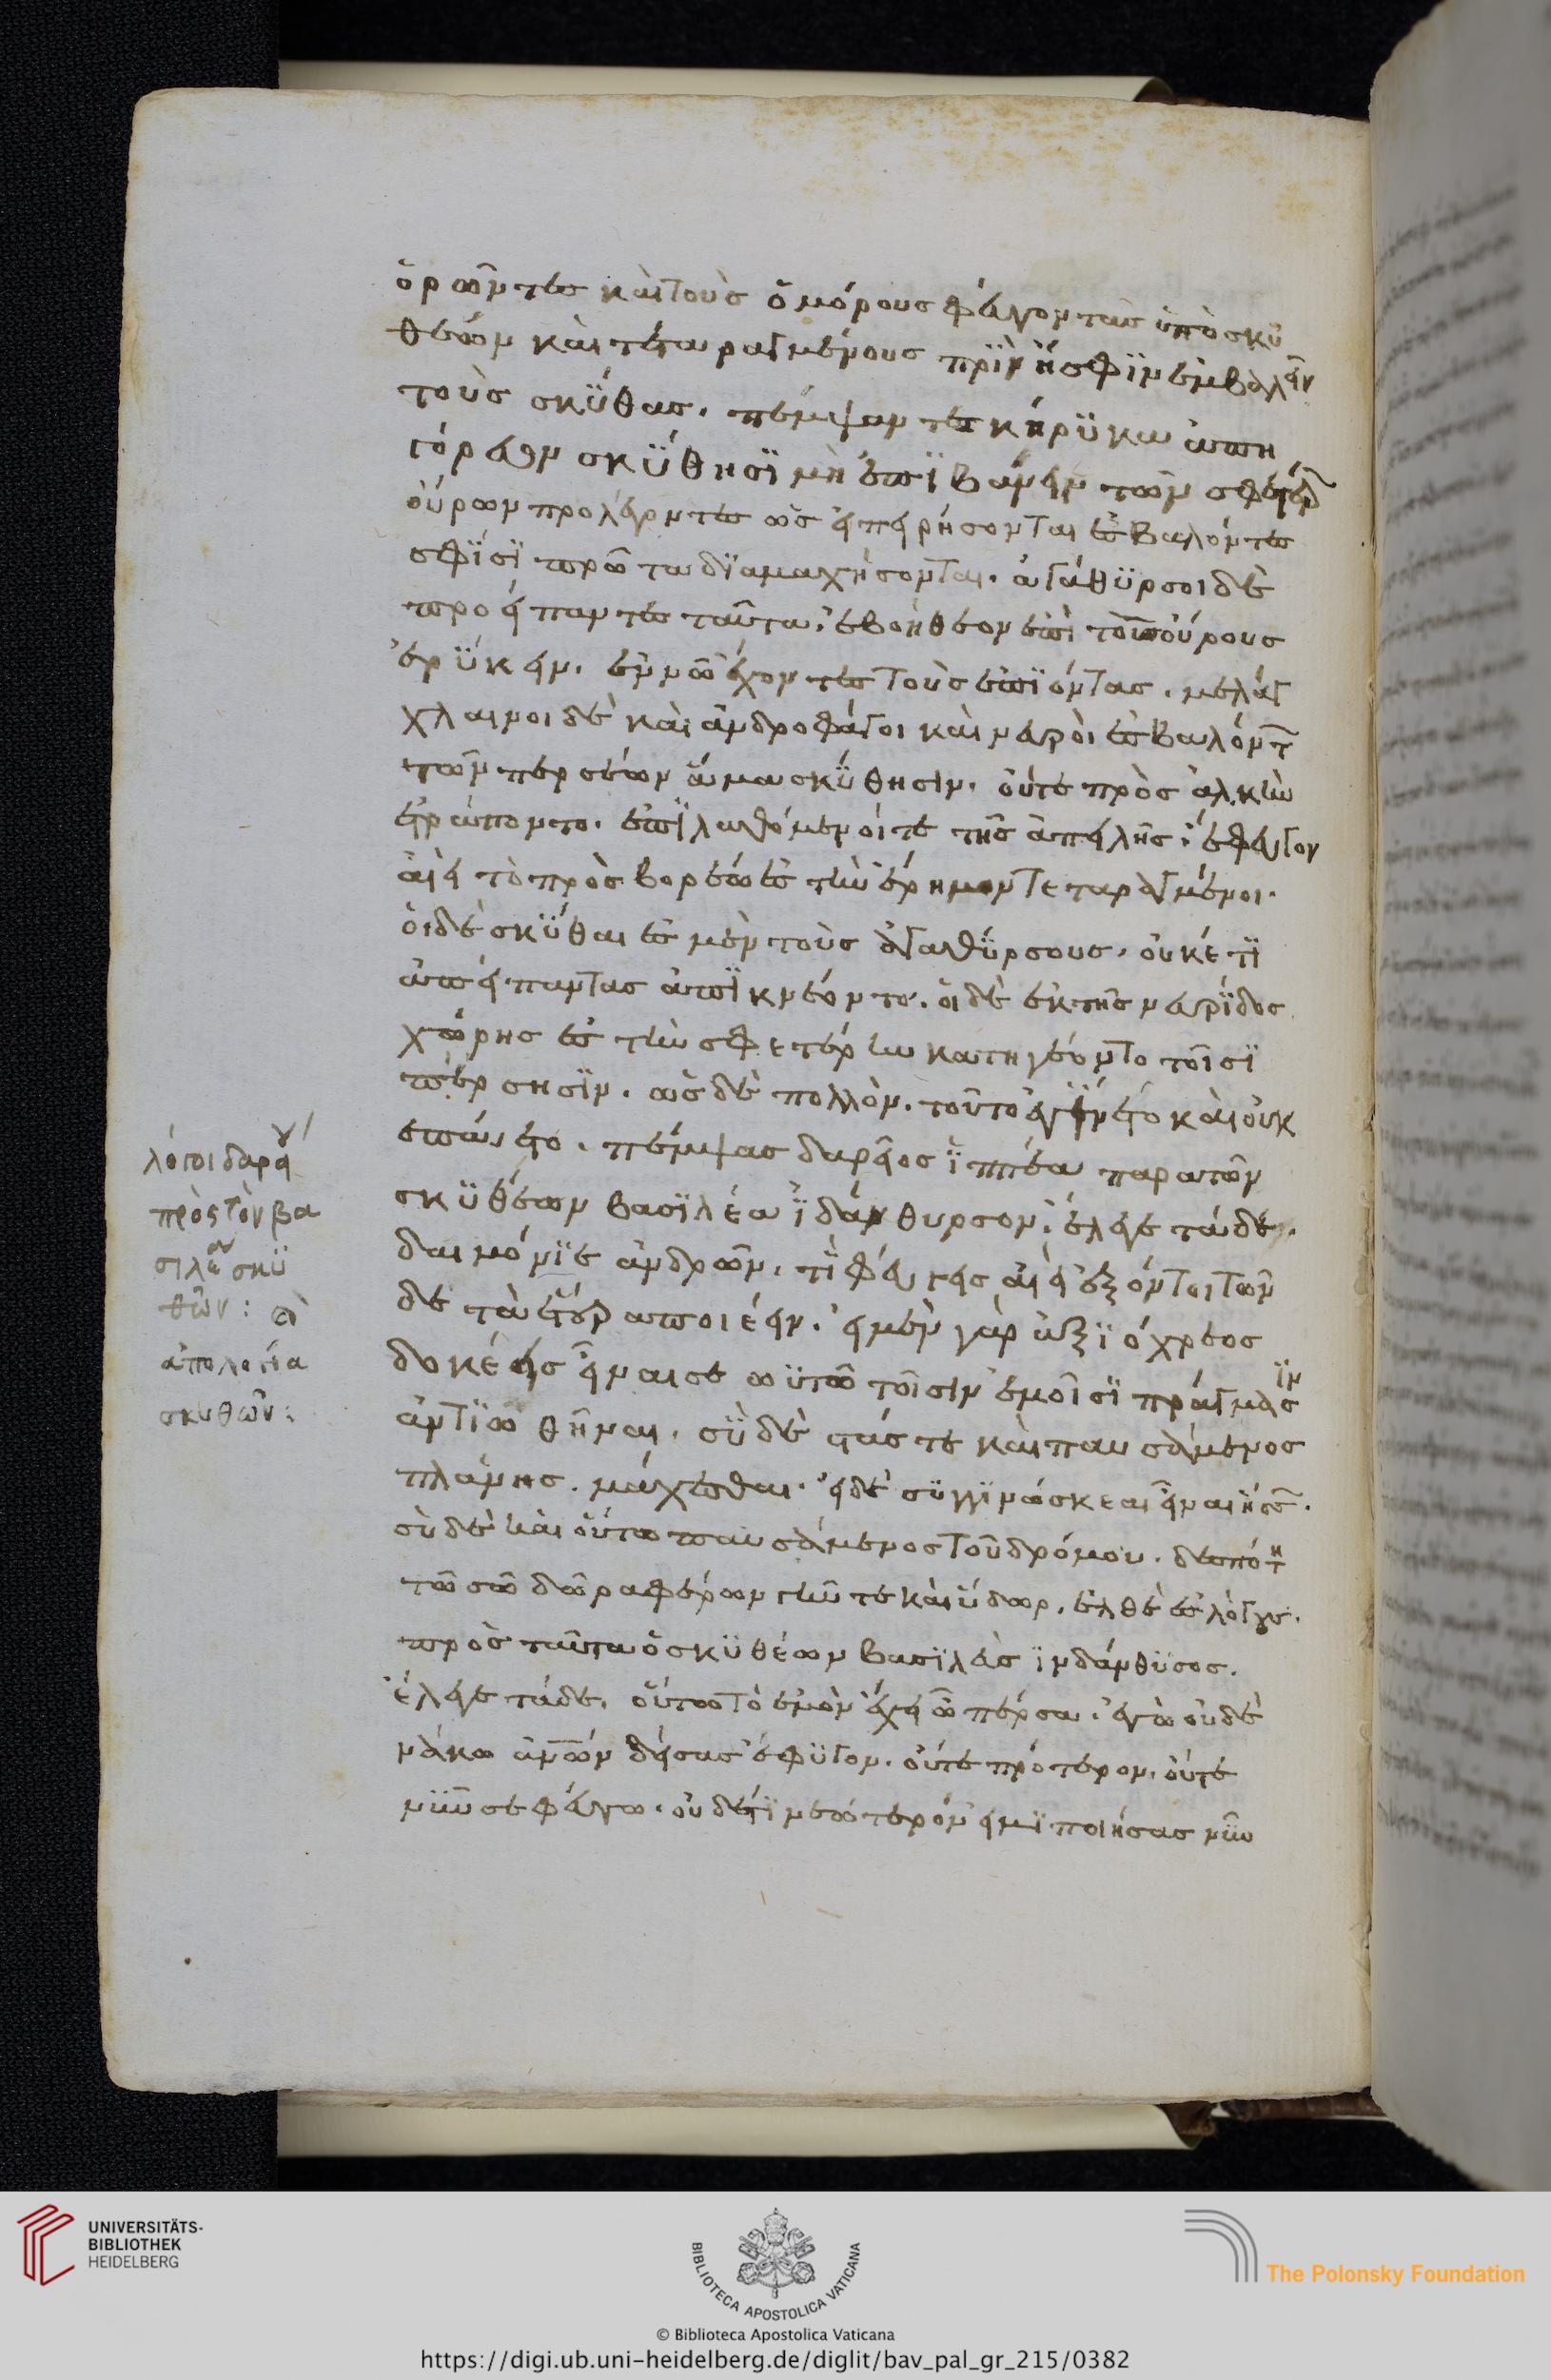 ὁρῶντες καὶ τοὺς ὁμόρους φεύγοντας ὑπὸ σκυ
θέων καὶ τεταραγμένους πρὶν ἤ σφιν ἐμβαλεῖν
τοὺς σκύθας. πέμψαντες κήρυκα ἀπη
γόρευον σκύθησι μὴ ἐπιβαίνειν τῶν σφετέρων
οὔρων προλέγοντες ὡς εἰ πειρήσονται ἐσβαλόντες
σφίσι πρῶτα διαμαχήσονται. ἀγάθυρσοι δὲ
προείπαντες ταῦτα. ἐβοήθεον ἐπὶ τοὺς οὔρους
ἐρύκειν. ἐν νῷ ἔχοντες τοὺς ἐπιόντας. μελάγ
χλαινοι δὲ καὶ ἀνδροφάγοι καὶ νευροὶ ἐσβαλόντ
τῶν περσέων ἅμα σκύθησιν. οὔτε πρὸς ἀλκὴν
ἐτράποντο. ἐπιλαθόμενοί τε τῆς ἀπειλῆς. ἔφευγον
αἰεὶ τὸ πρὸς βορέω ἐς τὴν ἔρημον τεταραγμένοι.
οἱ δὲ σκύθαι ἐς μὲν τοὺς ἀγαθύρσους. οὐκέτι
ἀπείπαντας ἀπικνέοντο. οἱ δὲ ἐκ τῆς νευρίδος
χώρης ἐς τὴν σφετέρην κατηγέοντο τοῖσι
πέρσησιν. ὡς δὲ πολλὸν. τοῦτο ἐγίνετο καὶ οὐκ
ἐπαύετο. πέμψας δαρεῖος ἱππέα παρὰ τῶν
σκυθέων βασιλέα ἰδάνθυρσον. ἔλεγε τάδε.
δαιμόνιε ἀνδρῶν. τί φεύγεις αἰεὶ ἐξόν τοι τῶν
δε τὰ ἕτερα ποιέειν. εἰ μὲν γὰρ ἀξιόχρεος
δοκέεις εἶναι σεωυτῶ τοῖσιν ἐμοῖσι πρήγμασιν
ἀντιωθῆναι. σὺ δὲ στάς τε καὶ παυσάμενος
πλάνης. μάχεσθαι. εἰ δὲ συγγινώσκεαι εἶναι ἥσσ.
σὺ δὲ καὶ οὕτω παυσάμενος τοῦ δρόμου. δεσπότη
τῶ σῶ δῶρα φέρων γῆν τε καὶ ὕδωρ. ἐλθὲ ἐς λόγους.
πρὸς ταῦτα ὁ σκυθέων βασιλεὺς ἰνδάνθυσος.
ἔλεγε τάδε. οὕτω τὸ ἐμὸν ἔχει ὦ πέρσα. ἐγὼ οὐδέ
να κω ἀνθρώπων δείσας ἔφυγον. οὔτε πρότερον. οὔτε
νῦν σε φεύγω. οὐδέ τι νεώτερόν εἰμι ποιήσας νῦν
λόγοι δαρεί
πρὸς τὸν βα
σιλέα σκυ
θῶν: καὶ
ἀπολογία
σκυθῶν:
UNIVERSITÄTS-
BIBLIOTHEK
HEIDELBERG
BIBLIOTECA APOSTOLICA VATICANA
The Polonsky Foundation
© Biblioteca Apostolica Vaticana
https://digi.ub.uni-heidelberg.de/diglit/bav_pal_gr_215/0382